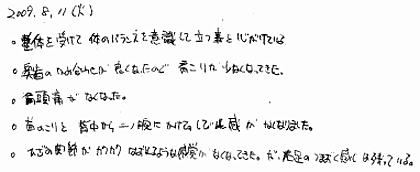 2009.8.11(火)
。整体を受けて 体のバランスを意識して立つ事を心がけている
。奥歯のかみ合わせが良くなったので 肩こりが少なくなってきた。
。偏頭痛がなくなった。
。首のこりと 背中から二ノ腕にかけてのしびれ感がなくなりました。
。ひざの関節がガクガクはずれるような感覚がなくなってきた。が、左足のつまずく感じは残っている。